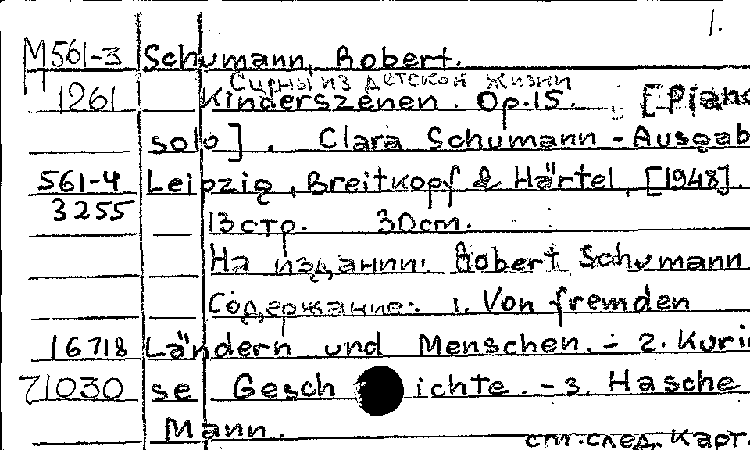 1.
М561-3 Schumann, Robert.
Сцены из детской жизни
1261 Kinderszenen. Op.15. [Piano
solo]. Clara Schumann - Ausgab
561-4 Leipzig, Breitkopf & Härtel, [1948].
3255 13 стр. 30 cm.
На издании: Robert Schumann
Содержание: 1. Von fremden
16718 Ländern und Menschen. - 2. Kurio
71030 se Geschichte. - 3. Hasche
Mann.
см.след. карт.